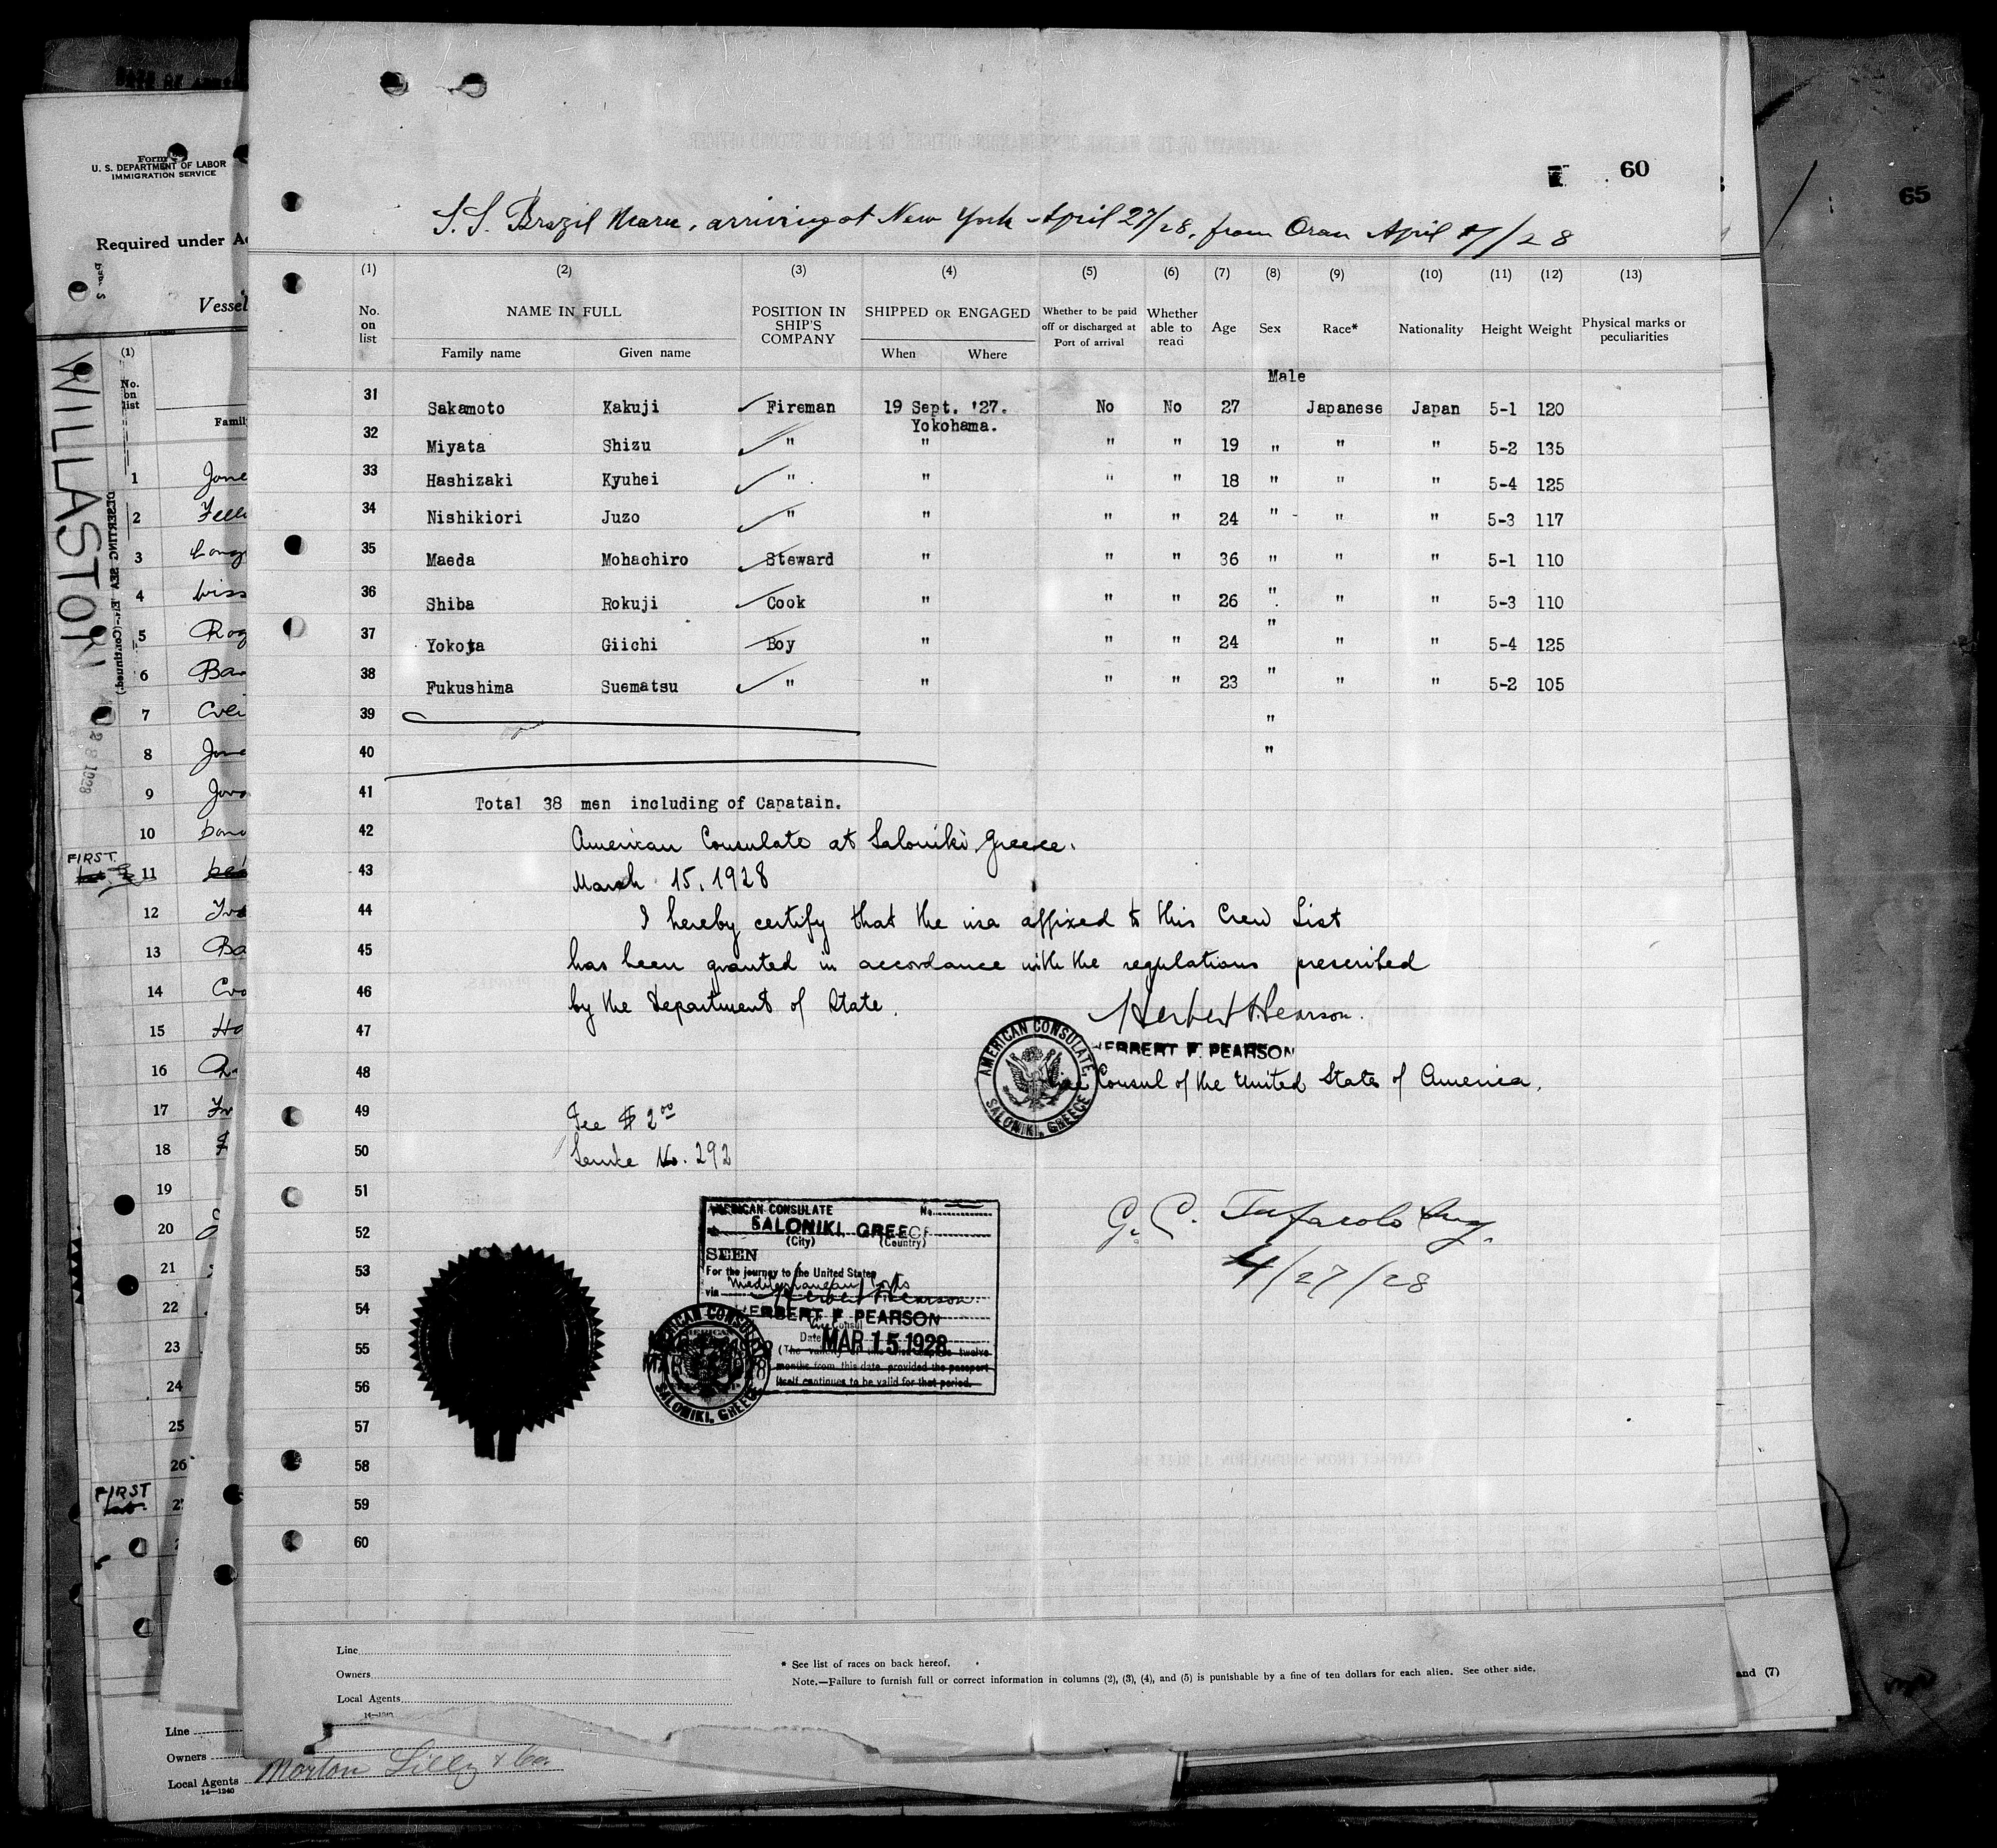 60
65
S.S. Brazil Maru, arriving at New York April 27/28, from Oran April 17/28
(1) (2) (3) (4) (5) (6) (7) (8) (9) (10) (11) (12) (13)
No. on list NAME IN FULL POSITION IN SHIP'S COMPANY SHIPPED OR ENGAGED Whether to be paid off or discharged at Port of arrival Whether able to read Age Sex Race* Nationality Height Weight Physical marks or peculiarities
Family name Given name When Where
Male
31 Sakamoto Kakuji Fireman 19 Sept. '27. Yokohama. No No 27 Japanese Japan 5-1 120
32 Miyata Shizu " " " " 19 " " " 5-2 135
33 Hashizaki Kyuhei " " " " 18 " " " 5-4 125
34 Nishikiori Juzo " " " " 24 " " " 5-3 117
35 Maeda Mohachiro Steward " " " 36 " " " 5-1 110
36 Shiba Rokuji Cook " " " 26 " " " 5-3 110
37 Yokota Giichi Boy " " " 24 " " " 5-4 125
38 Fukushima Suematsu " " " " 23 " " " 5-2 105
39 "
40 "
41 Total 38 men including of Capatain.
42 American Consulate at Saloniki Greece.
43 March 15, 1928
44 I hereby certify that the visa affixed to this Crew List
45 has been granted in accordance with the regulations prescribed
46 by the Department of State.
Herbert F. Pearson.
47 HERBERT F. PEARSON
48 Vice Consul of the United States of America.
AMERICAN CONSULATE, SALONIKI, GREECE
49 Fee $ 2.00
50 Service No. 292
51
52
53
54
55
56
57
58
59
60
AMERICAN CONSULATE No.
SALONIKI, GREECE
(City) (Country)
SEEN
For the journey to the United States
via Mediterranean Ports
Herbert F. Pearson
HERBERT F. PEARSON
Vice Consul
Date MAR 15 1928
(The validity of this visa expires twelve
months from this date provided the passport
itself continues to be valid for that period.
AMERICAN CONSULATE SALONIKI, GREECE
4/27/28
Line
Owners
Local Agents
14—1240
* See list of races on back hereof.
Note.—Failure to furnish full or correct information in columns (2), (3), (4), and (5) is punishable by a fine of ten dollars for each alien. See other side.
and (7)
Form
U. S. DEPARTMENT OF LABOR
IMMIGRATION SERVICE
Required under
Vessel
WILLASTON
(1)
No. on list
1
2
3
4
5
6
7
8
9
10
FIRST
11
12
13
14
15
16
17
18
19
20
21
22
23
24
25
26
FIRST
Line
Owners
Local Agents Morton Lilly & Co.
14—1240